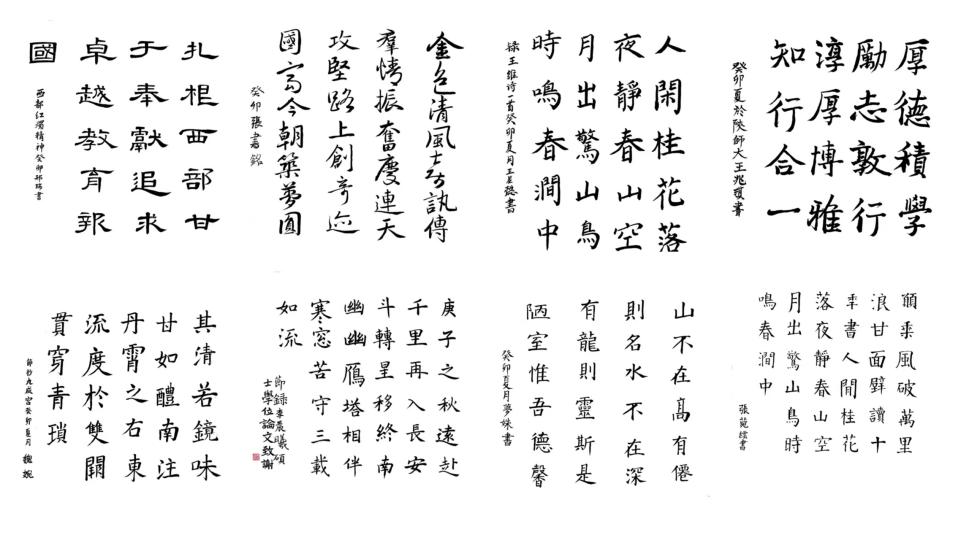 厚德積學
勵志敦行
淳厚博雅
知行合一
癸卯夏於陝師大王兆瓊書
人閑桂花落
夜靜春山空
月出驚山鳥
時鳴春澗中
錄王維诗一首癸卯夏月王星懿書
金色清風喜訊傳
羣情振奮慶連天
攻堅路上創奇迹
國富今朝築夢圓
癸卯張書銘
扎根西部甘
于奉獻追求
卓越教育報
國
西部红燭精神癸卯邱瑞書
願乘風破萬里
浪甘面壁讀十
年書人閒桂花
落夜靜春山空
月出驚山鳥時
鳴春澗中
張苑書
山不在高有僊
則名水不在深
有龍則靈斯是
陋室惟吾德馨
癸卯夏月夢姝書
庚子之秋遠赴
千里再入長安
斗轉星移終南
幽幽鴈塔相伴
寒窓苦守三載
如流
節録李晨曦碩
士學位論文致謝
其清若鏡味
甘如醴南注
丹霄之右東
流度於雙闕
貫穿青瑣
節抄九成宮癸卯夏月 婉